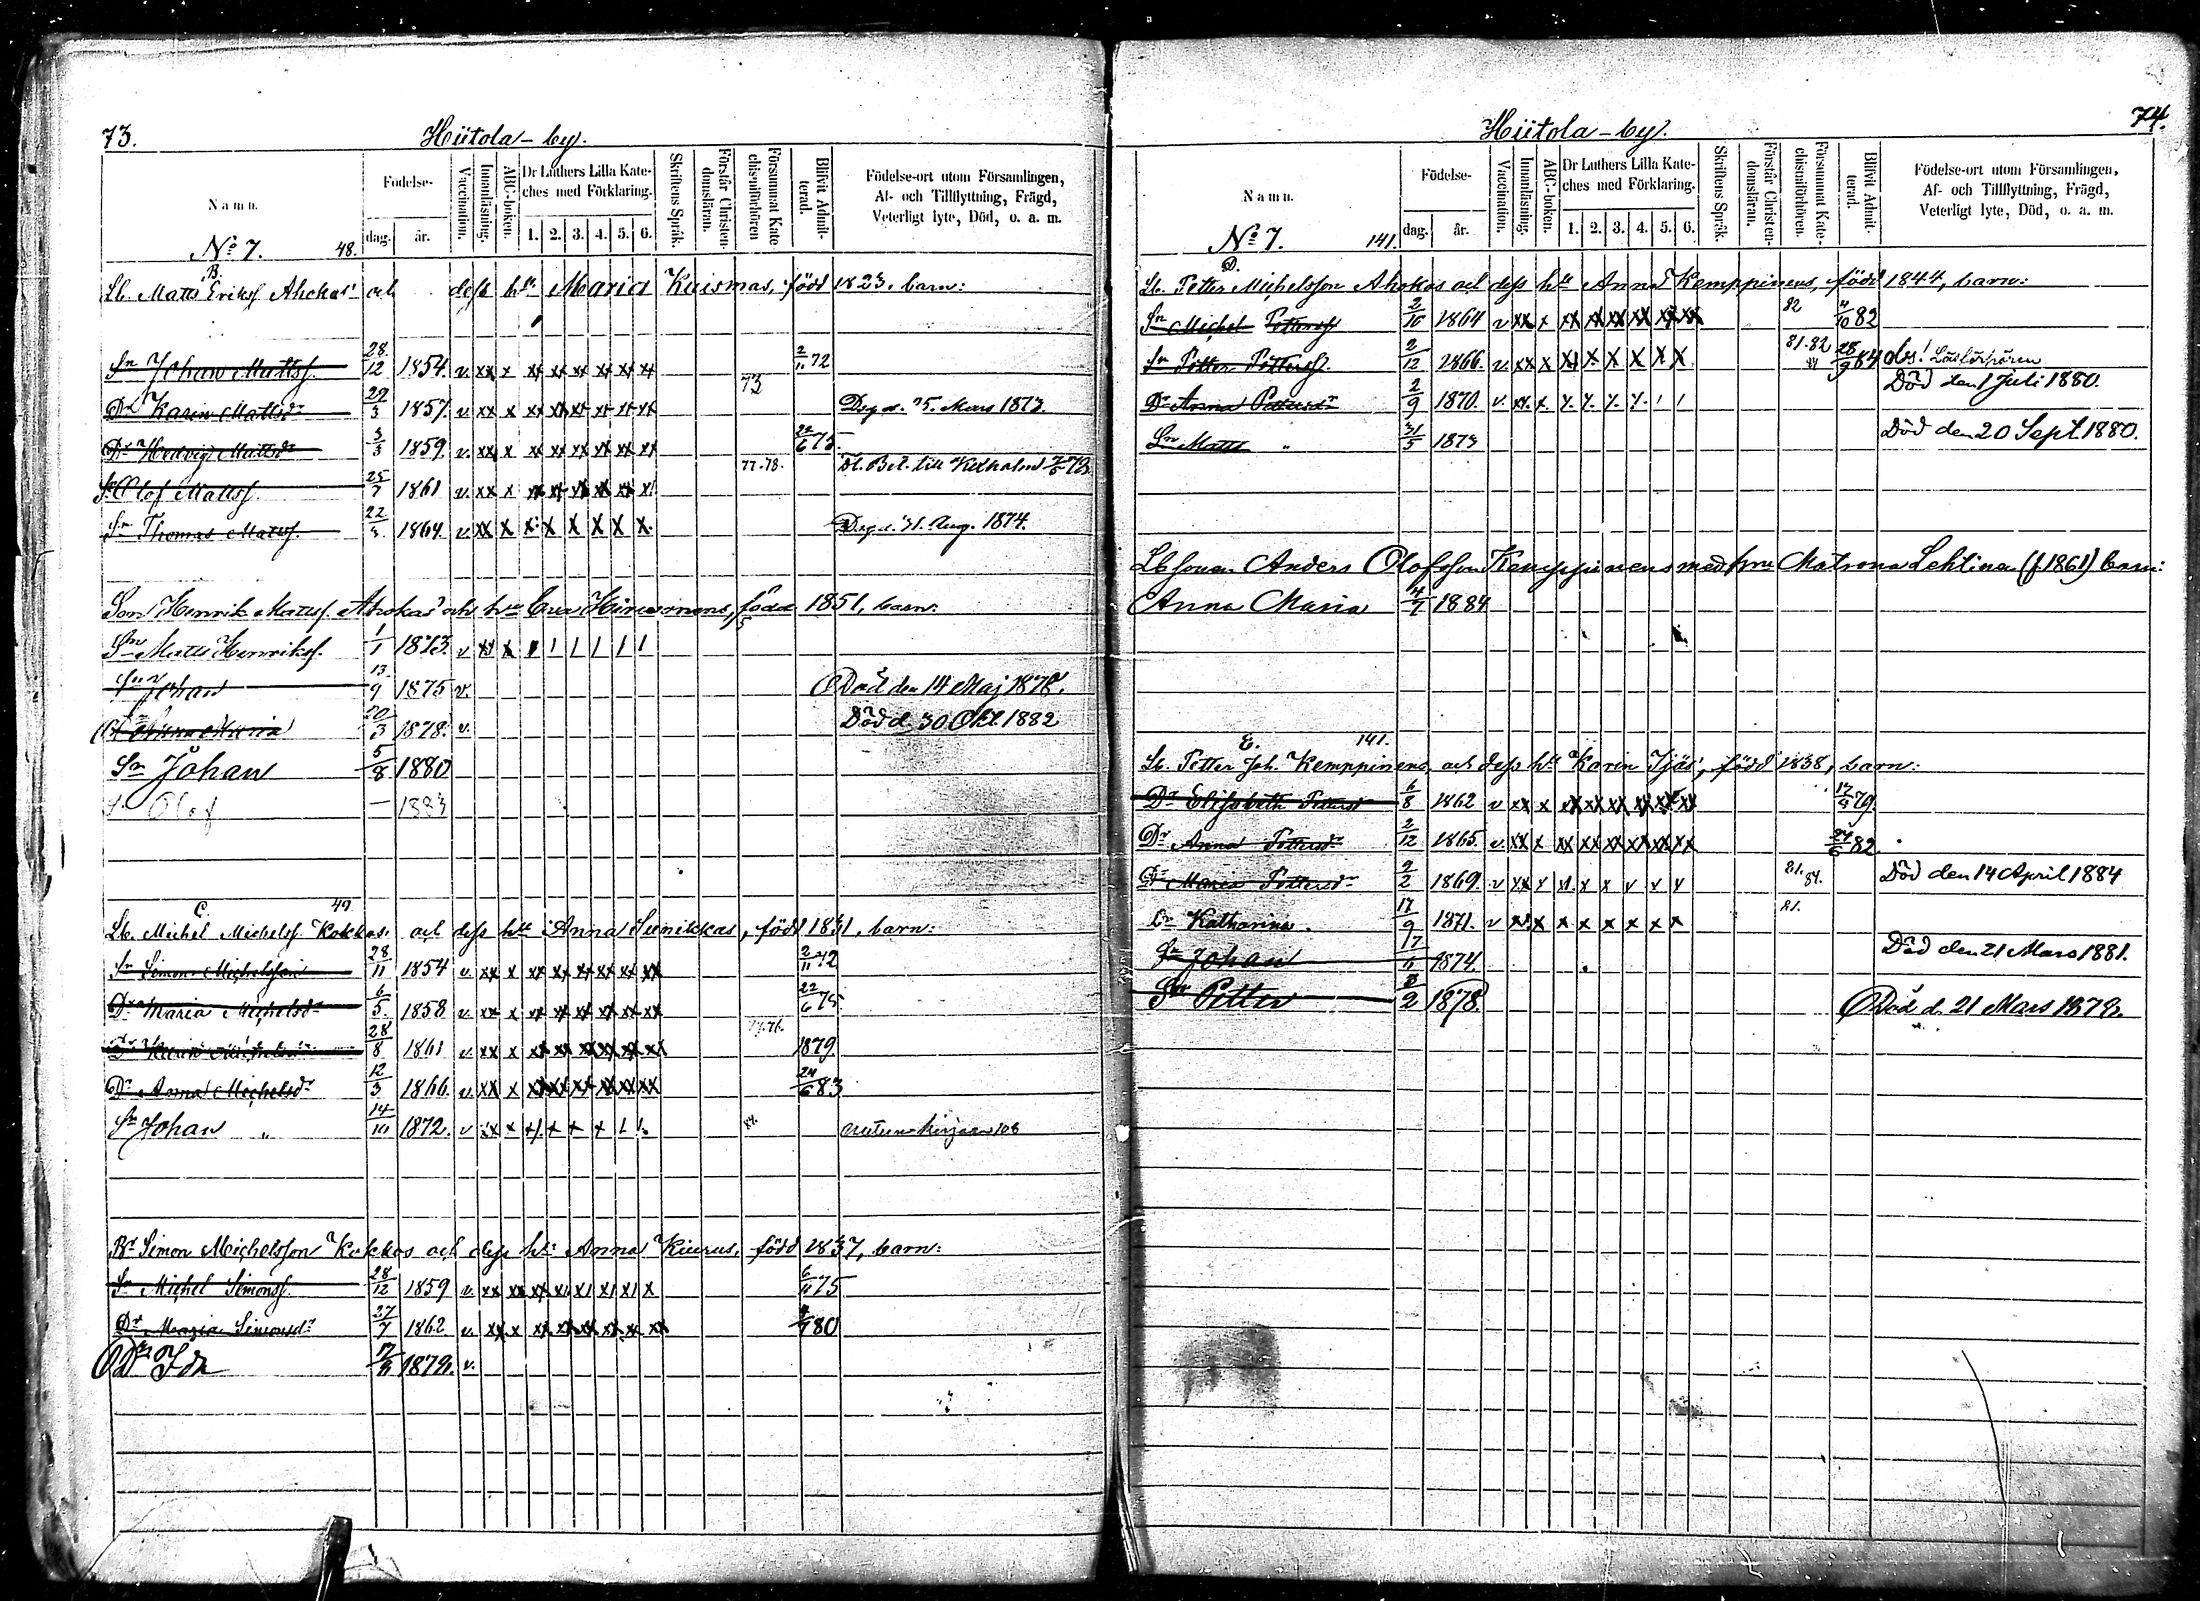 73.
Hiitola-by.
Namn.
Födelse-
dag.
år.
Vaccination.
Innanläsning.
ABC-boken.
Dr Luthers Lilla Kate-
ches med Förklaring.
1. 2. 3. 4. 5. 6.
Skriftens Språk.
Förstår Christen-
domsläran.
Försummat Kate
chismiförhören
Blifvit Admit-
terad.
Födelse-ort utom Församlingen,
Af- och Tillflyttning, Frägd,
Veterligt lyte, Död, o. a. m.
No 7. 48.
B.
Lb. Matts Erikss. Ahokas och dess hu Maria Kuismas, född 1823, barn:
Sn Johan Mattss. 28/12 1854. v. xx x xx xx xx xx xx xx 2/11 72
Dr Karin Mattsdr 29/3 1857. v xx x xx xx xx xx xx xx 73 Dog d. 5. Mars 1873.
Dr Hedvig Mattsdr 3/3 1859. v. xx x xx xx xx xx xx xx 22/6 75
Sn Olof Mattss. 25/7 1861 v. xx x xx xx xx xx xx x 77-78.
Sn Thomas Mattss. 22/3 1864. v xx x x x x x x x Dog d. 31. Aug. 1874.
Son Henrik Mattss. Ahokas och hu Eva Hirvonens, född 1851, barn:
Sn Matts Henrikss. 1/1 1873. v xx x 1 1 1 1 1 1
Sn Johan 13/9 1875 v. Död den 14 Maj 1878.
Dr Anna Maria 20/3 1878. v. Död d. 30 Okt 1882
Sn Johan 5/8 1880
Sn Olof — 1883
C. 49
Lb. Michel Michelss. Kokkos och dess hu Anna Sunikkas, född 1831, barn:
Sn Simon Michelsson 28/11 1854 v. xx x xx xx xx xx xx xx 2/11 72
Dr Maria Michelsdr 6/5 1858 v xx x xx xx xx xx xx xx 22/6 75.
Dr Karin Michelsdr 28/8 1861 v. xx x xx xx xx xx xx xx 1879.
Dr Anna Michelsdr 12/3 1866 v. xx x xx xx xx xx xx xx 24/6 83
Sn Johan " 14/10 1872. v x x x x x x 1 1 84. uuteen kirjaan 108
Br Simon Michelsson Kokkos och dess hu Anna Kiurus, född 1837, barn:
Sn Michel Simonss. 28/12 1859 v. xx xx xx x x x x x 6/11 75
Dr Maria Simonsdr 27/7 1862 v. xx x xx xx xx xx xx xx 80
Dr Ida 1879. v.
74.
Hiitola-by.
Namn.
Födelse-
dag.
år.
Vaccination.
Innanläsning.
ABC-boken.
Dr Luthers Lilla Kate-
ches med Förklaring.
1. 2. 3. 4. 5. 6.
Skriftens Språk.
Förstår Christen-
domsläran.
Försummat Kate-
chismiförhören.
Blifvit Admit-
terad.
Födelse-ort utom Församlingen,
Af- och Tillflyttning, Frägd,
Veterligt lyte, Död, o. a. m.
No 7. 141.
D.
Lb. Petter Michelsson Ahokas och dess hu Anna Kemppinens, född 1844, barn:
Sn Michel Petterss. 2/10 1864 v xx x xx xx xx xx xx xx 82 4/10 82
Sn Petter Petterss. 2/12 1866. v. xx x x x x x x x 81-82 84 28/9 84 obs!
Dr Anna Pettersdr 2/9 1870. v. xx. x. Död den 1 Juli 1880.
Sn Matts " 31/5 1873 Död den 20 Sept 1880.
Lbsonen Anders Olofsson Kemppinens med hru Matrona Lehtinen (f 1861) barn:
Anna Maria 4/7 1884
E. 141.
Lb. Petter Joh. Kemppinens, och dess hu Karin Tjäs, född 1838, barn:
Dr Elisabeth Pettersdr 6/8 1862 v xx x xx xx xx xx xx xx 79
Dr Anna Pettersdr 2/12 1865. v. xx x xx xx xx xx xx xx 24/6 82
Dr Maria Pettersdr 2/2 1869. v xx x x x x x x x 81. 84. Död den 14 April 1884
Dr Katharina. 17/9 1871. v x x x x x x x x 81.
Sn Johan 1874. Död den 21 Mars 1881.
Sn Petter 1878. Död d. 21 Mars 1879.